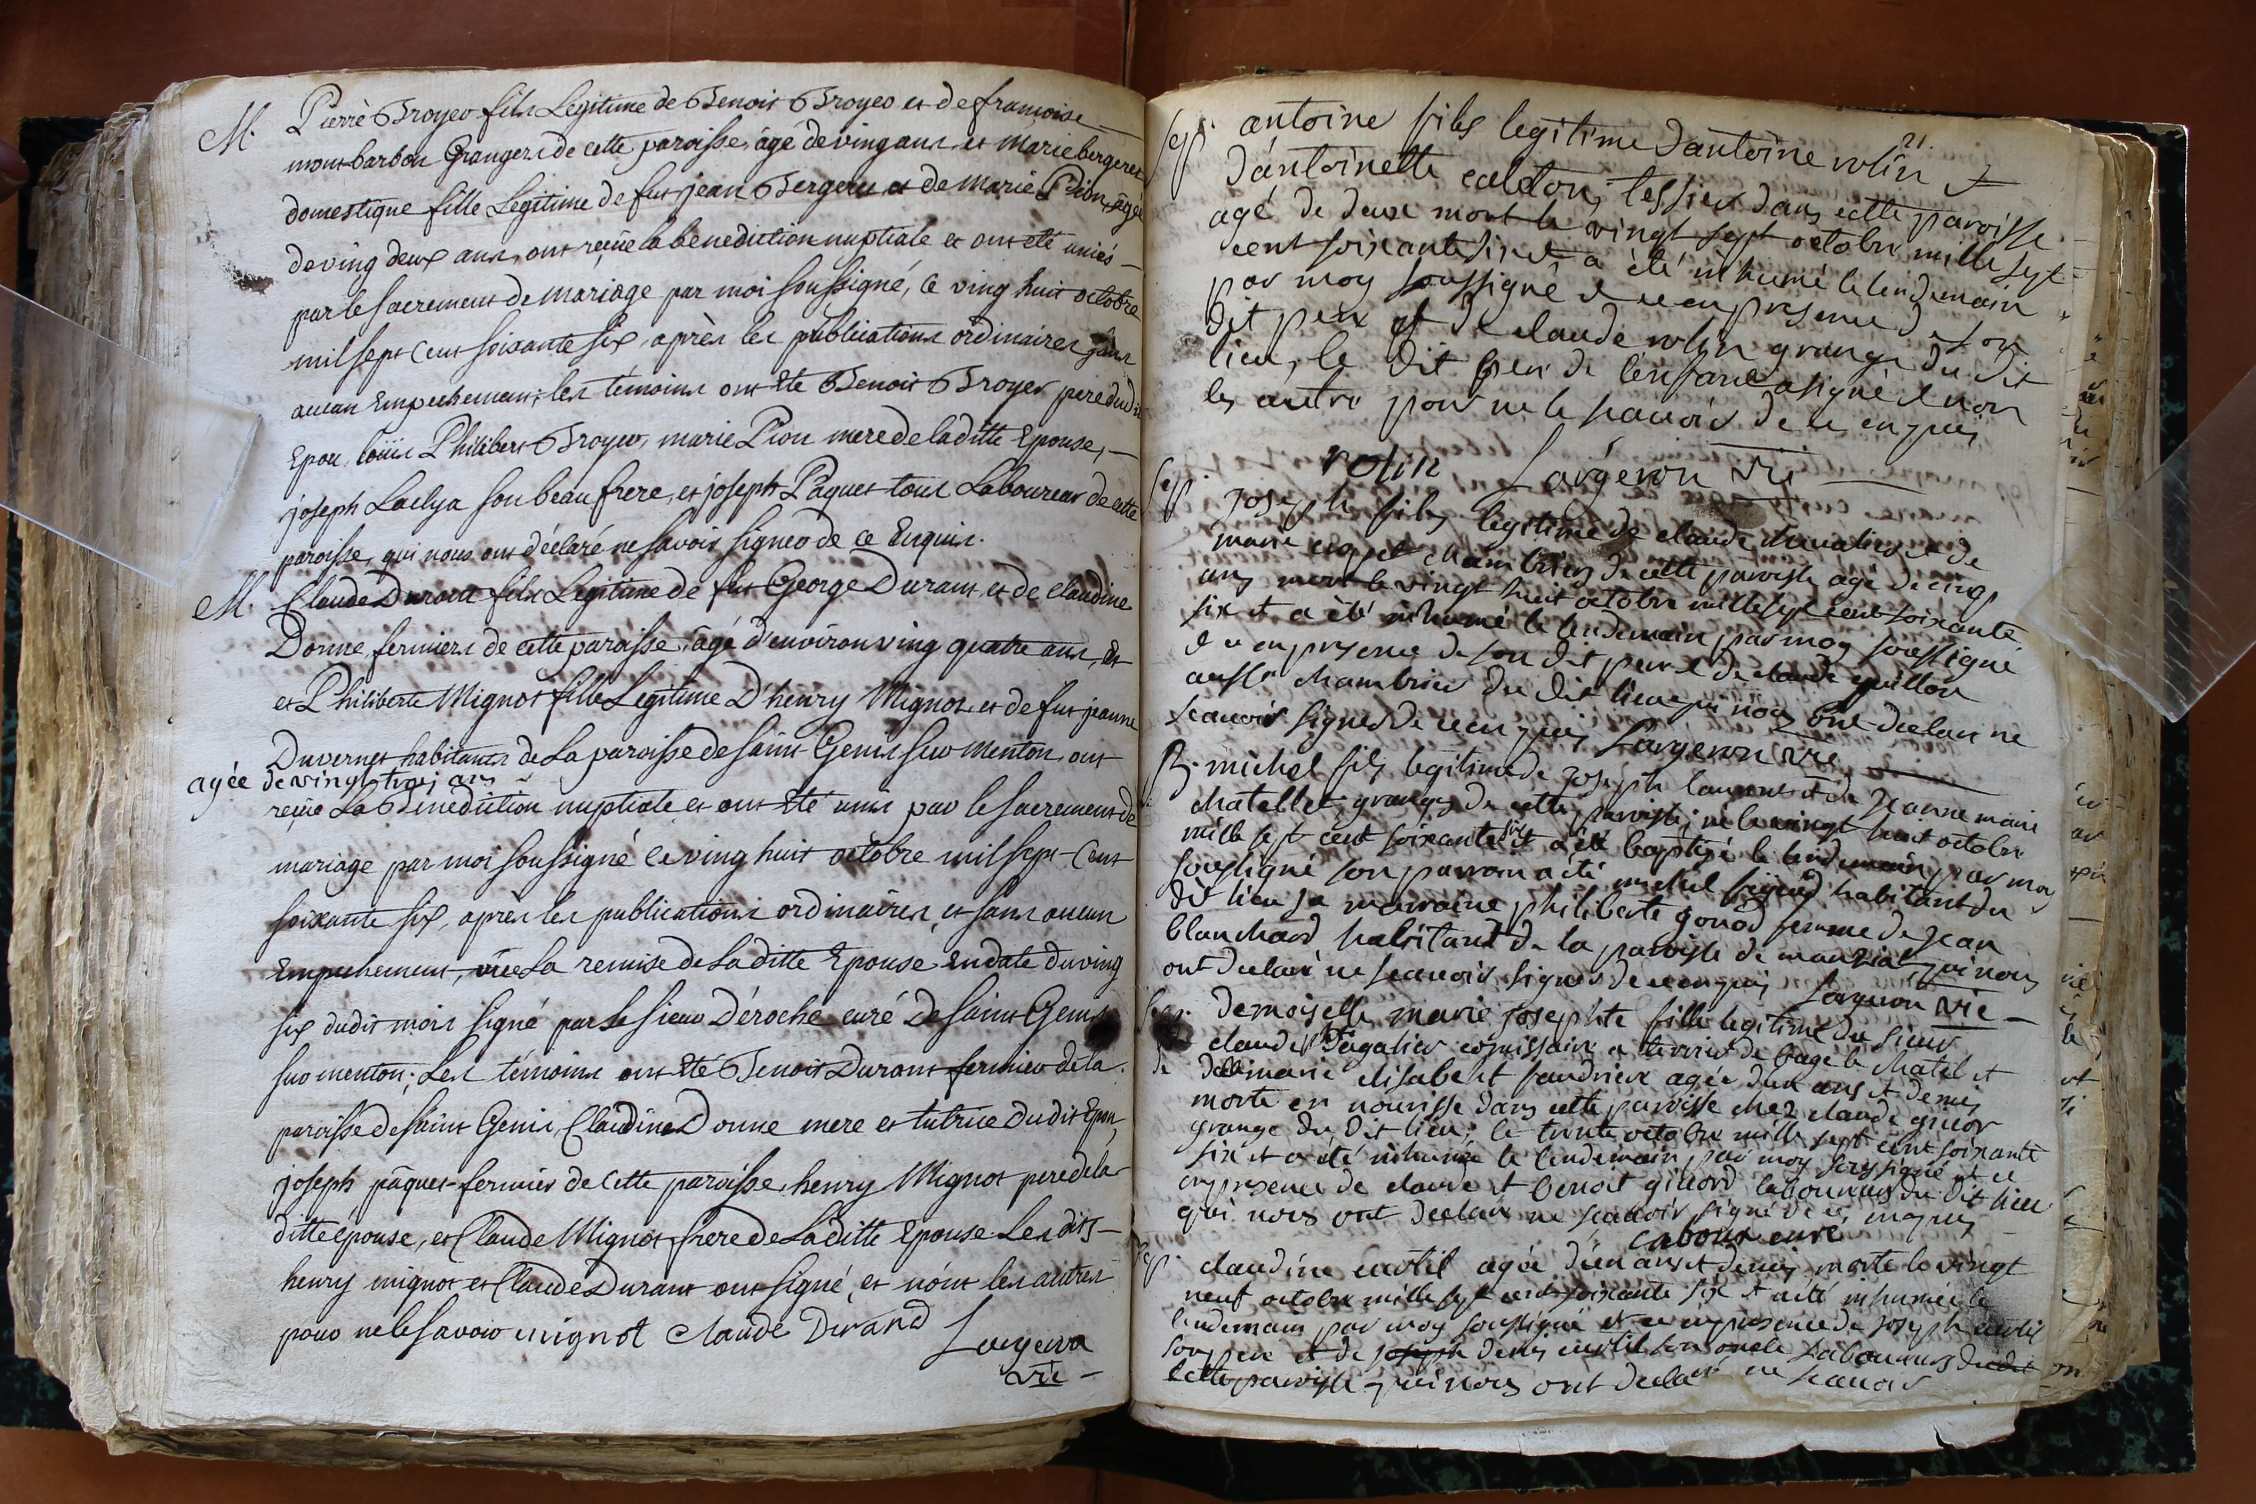 M. Pierre Broyer fils Legitime de Benoit Broyer et de francoise
montbarbon Grangers de cette paroisse, âgé de ving ans, et Marie bergeret
domestique fille Legitime de fut jean Bergeret et de Marie Pion, âgée
de ving deux ans, ont reçüe la benediction nuptiale et ont eté uniés
par le sacrement de mariage par moi soussigné, le ving huit octobre
mil sept Cent soixante six, après les publications ordinaires sans
aucun Empechement; les témoins ont Eté Benoit Broyer pere dudit
Epou, loüis Philibert Broyer, marie Pion mere de laditte Epouse,
joseph Laclya son beau frere, et joseph Paquet tous Laboureur de cette
paroisse, qui nous ont déclaré ne savoir signer de ce Enquis.
M. Claude Durant fils Legitime de fut George Durant, et de claudine
Donne, fermiers de cette paroisse, âgé d'environ ving quatre ans, et
et Philiberte Mignot fille Legitime D'henry Mignot, et de fut jeanne
Duvernet habitants de La paroisse de saint Genis sur menton, ont
agée de vingt troi ans
reçüe La Benediction nuptiale et ont Eté unis par le sacrement de
mariage par moi soussigné ce ving huit octobre mil sept Cent
soixante six, après les publications ordinaires, et sans aucun
Empechement, vüe La remise de Laditte Epouse, en date du ving
six dudit mois signé par Le sieur Déroche curé De saint Genis
sur menton; Les témoins ont Eté Benoit Durant fermier de la
paroisse de saint Genis, Claudine Donne mere et tutrice dudit Epou,
joseph pâquet fermier de Cette paroisse, henry Mignot pere de la
ditte épouse, et Claude Mignot frere de Laditte Epouse. Les dits
henry mignot et Claude Durant ont signé, et nont les autres
pour ne le savoir mignot claude Durand Largeron
vic
21
sep. antoine fils legitime d'antoine rolin et
d'antoinette caleton, tessier dans cette paroisse
agé de deux mort le vingt sept octobre mille sept
cent soixante six et a été inhumé le lendemain
par moy soussigné et ce en presence de son
dit pere et de claude rolin granger du dit
lieu, le dit pere de l'enfant a signé et non
les autre pour ne le scavoir de ce enquis
rolin Largeron vic
sep. joseph fils legitime de claude chevalier et de
marie coppet chambrier de cette paroisse agé de cinq
ans mort le vingt huit octobre mille sept cent soixante
six et a été inhumé le lendemain par moy soussigné
et ce en presence de son dit pere et de claude guillon
aussi chambrier du dit lieu qui nous ont declaré ne
scavoir signer de ce enquis Largeron vic
B. michel fils legitime de joseph laurent et de jeanne marie
chatellet granger de cette paroisse, né le vingt huit octobre
mille sept cent soixante six et a été baptisé le lendemain par moy
soussigné son parrain a été michel habitant du
dit lieu sa marraine philiberte gonod femme de jean
blanchard habitant de la paroisse de manziat qui nous
ont declaré ne scavoir signer de ce enquis Largeron vic
sep. demoiselle marie josephte fille legitime du sieur
claude Dagalier comissaire a terrier de bagé le chatel et
de delle marie elisabeth agée d'un ans et demis
morte en nourisse dans cette paroisse chez claude
granger du dit lieu; le trente octobre mille sept cent soixante
six et a été inhumée le lendemain par moy soussigné et ce
en presence de claude et benoit laboureurs du dit lieu
qui nous ont declaré ne scavoir signé de ce enquis
curé
sep. claudine curtil agée d'un ans et demis, morte le vingt
neuf octobre mille sept cent soixante six et a été inhumée le
lendemain par moy soussigné et ce en presence de joseph curtil
son pere et de joseph denis curtil son oncle Laboureurs du dit
cette paroisse qui nous ont declaré ne scavoir